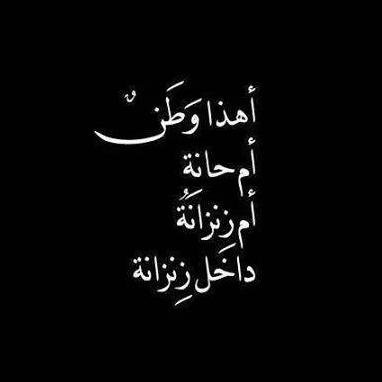 أهذا وَطَنٌ
أم حانة
أم زِنزانَةُ
داخَل زِنزانة